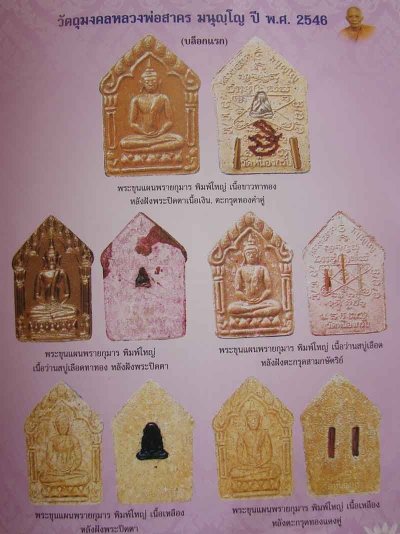 วัตถุมงคลหลวงพ่อสาคร มนุญฺโญ ปี พ.ศ. 2546
(บล็อกแรก)
พระขุนแผนพรายกุมาร พิมพ์ใหญ่ เนื้อขาวทาทอง
หลังฝังพระปิดตาเนื้อเงิน, ตะกรุดทองคำคู่
พระขุนแผนพรายกุมาร พิมพ์ใหญ่
เนื้อว่านสบู่เลือดทาทอง หลังฝังพระปิดตา
พระขุนแผนพรายกุมาร พิมพ์ใหญ่ เนื้อว่านสบู่เลือด
หลังฝังตะกรุดสามกษัตริย์
พระขุนแผนพรายกุมาร พิมพ์ใหญ่ เนื้อเหลือง
หลังฝังพระปิดตา
พระขุนแผนพรายกุมาร พิมพ์ใหญ่ เนื้อเหลือง
หลังตะกรุดทองแดงคู่